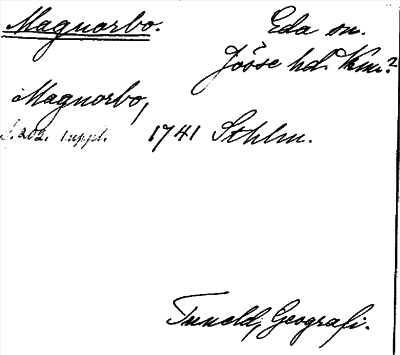 Magnorbo. Eda sn.
Jösse hd. Vrml.
Magnorbo,
s. 202. 1 uppl. 1741 Sthlm.
Tuneld, Geografi.